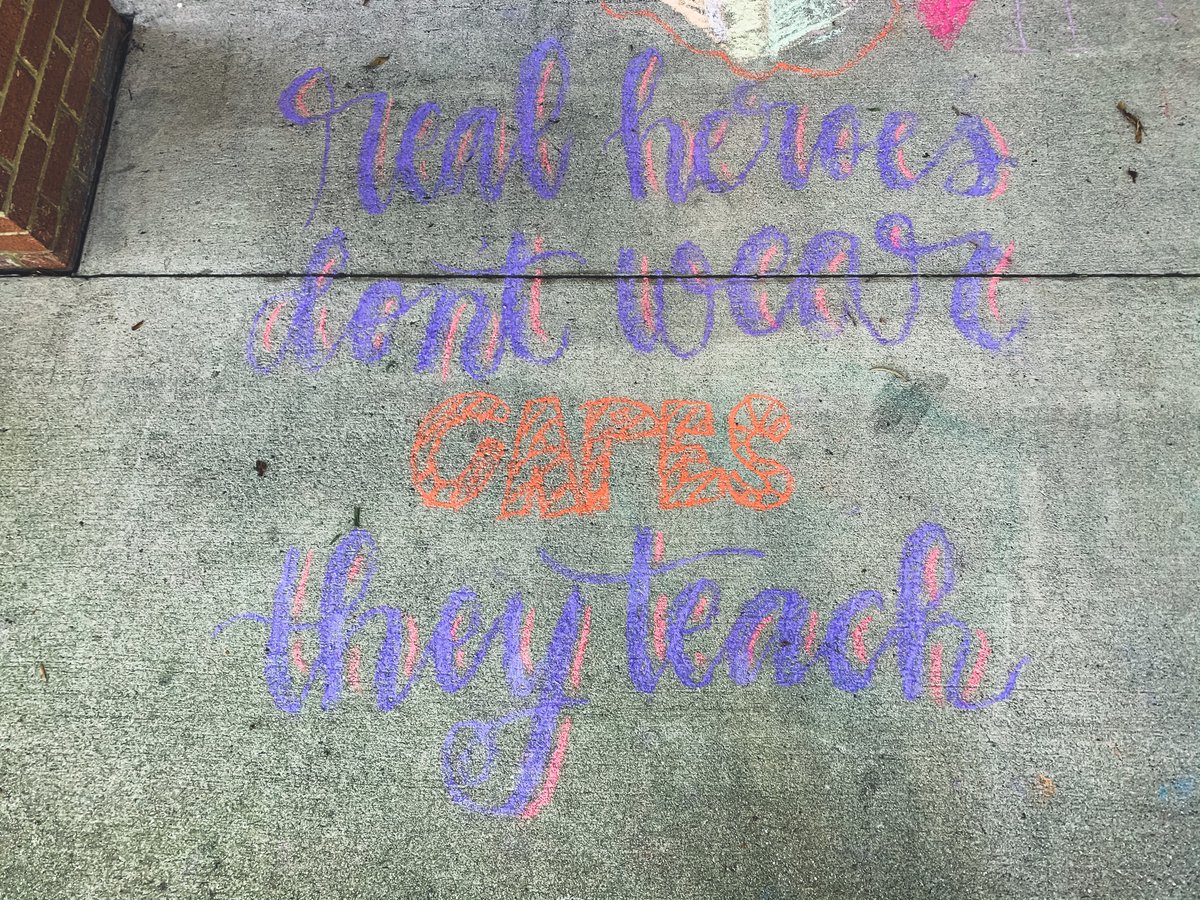 real heroes
don't wear
CAPES
they teach